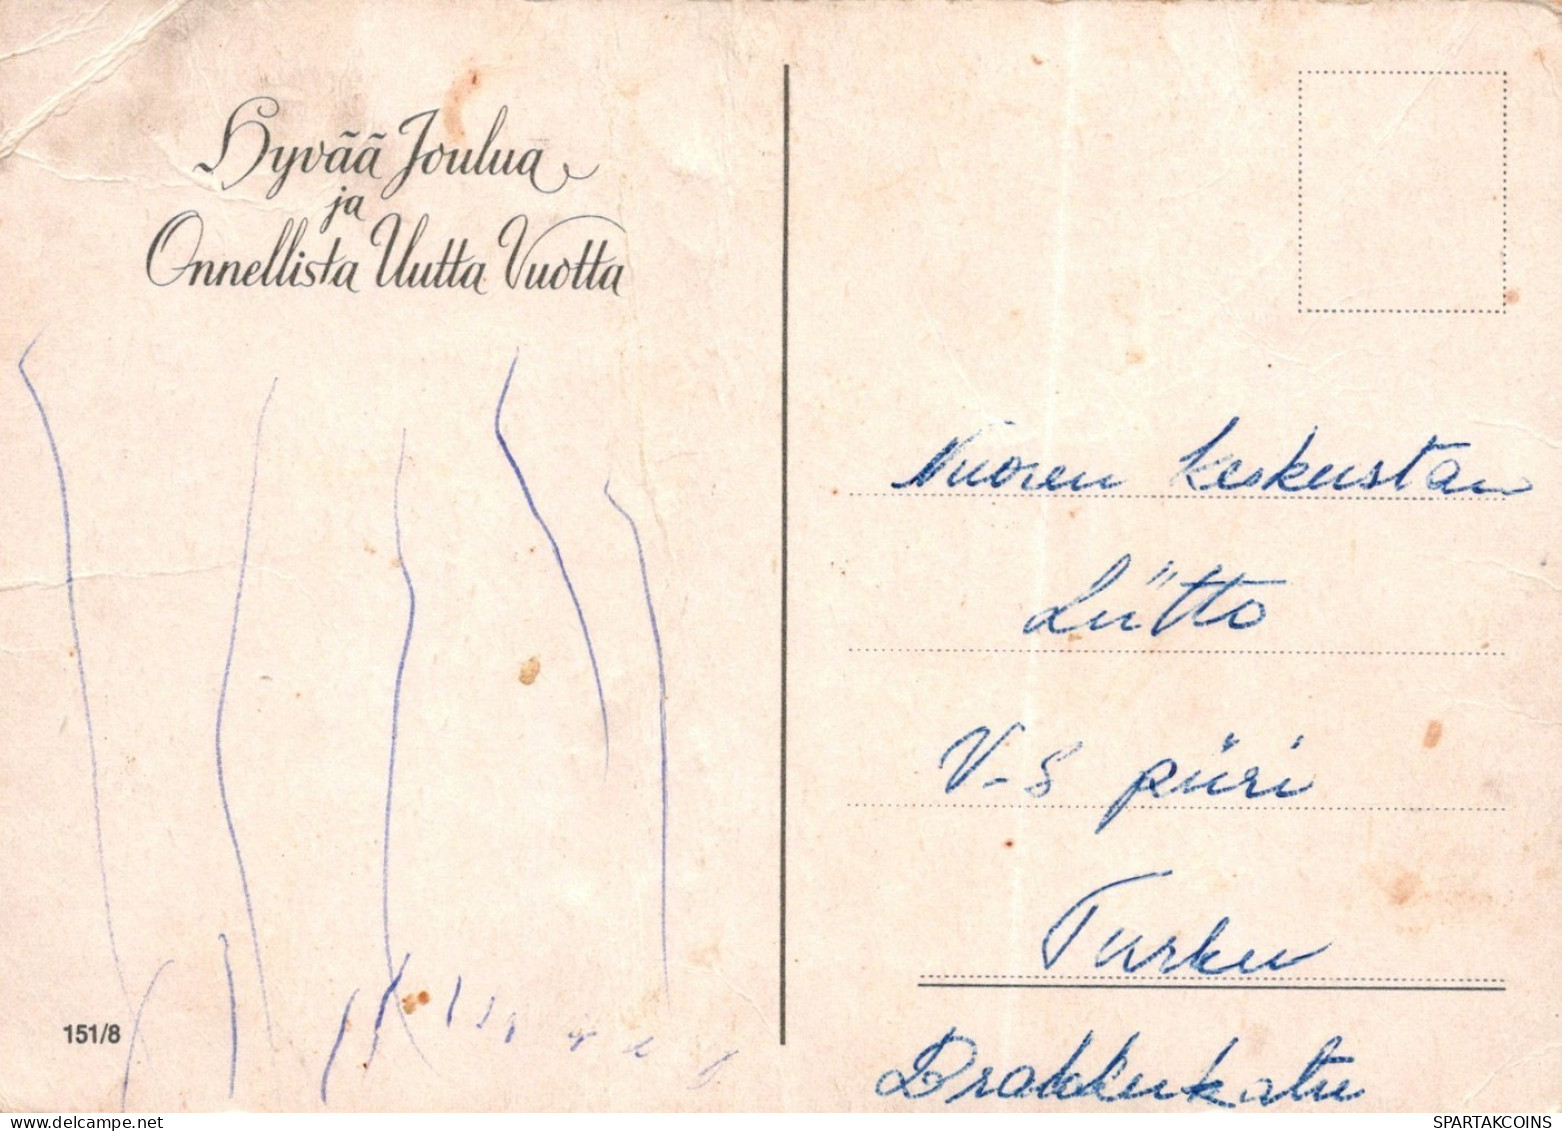 Hyvää Joulua
ja
Onnellista Uutta Vuotta
151/8
Nuoren Keskustan
Liitto
V-S piiri
Turku
Brahkukatu
SPARTAKCOINS